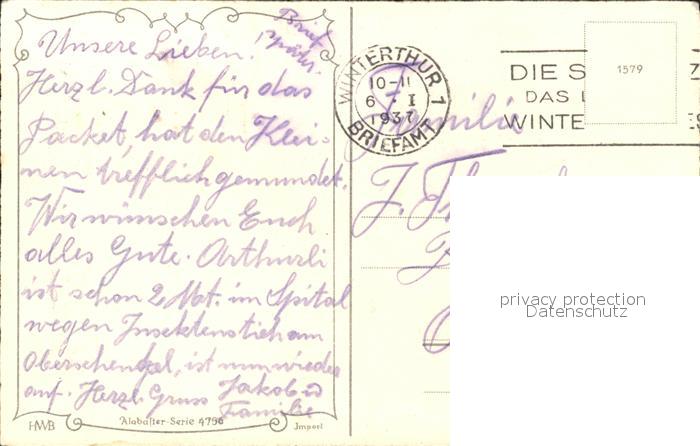 Brief
später.
Unsere Lieben!
Herzl. Dank für das
Packet, hat den Klei-
nen trefflich gemundet.
Wir wünschen Euch
alles Gute. Arthurli
ist schon 2 Mt. im Spital
wegen Insektenstich am
Oberschenkel, ist nun wieder
auf. Herzl. Gruss Jakob u
Familie
HWB
Alabaster-Serie 4796
Import
WINTERTHUR 1
10-11
6. I
1937
BRIEFAMT
DIE S
DAS
WINTE
1579
Familie
J.
privacy protection
Datenschutz